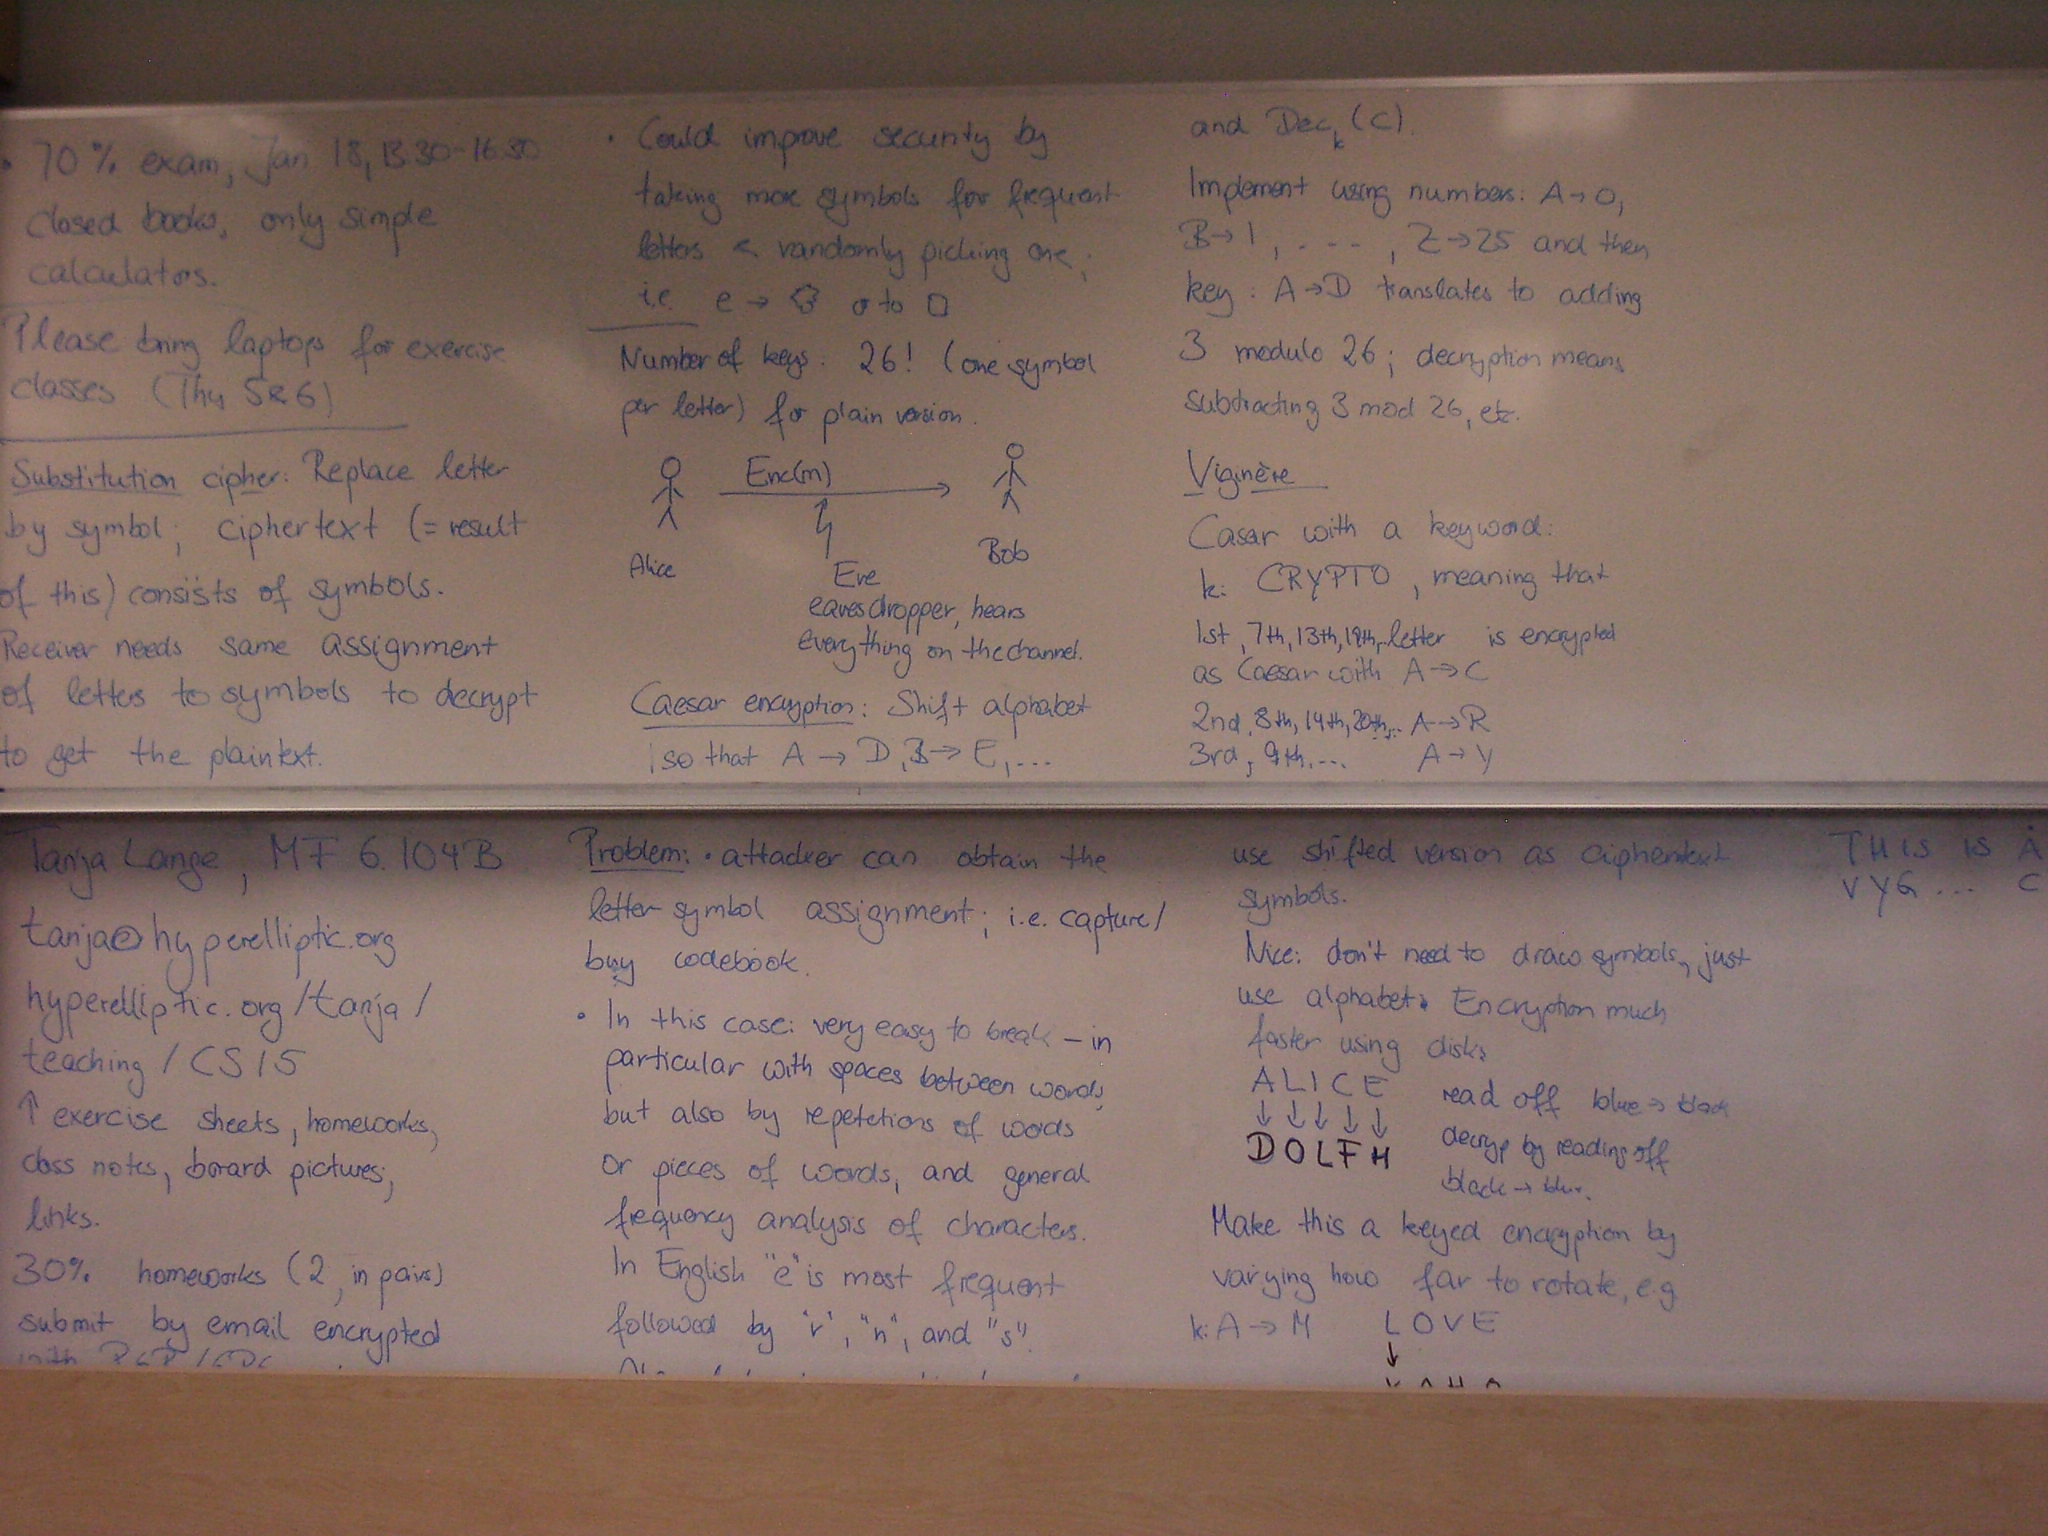 • 70% exam, Jan 18, 13.30-16.30
closed books, only simple
calculators.
Please bring laptops for exercise
classes (Thu 5&6)
Substitution cipher: Replace letter
by symbol; ciphertext (= result
of this) consists of symbols.
Receiver needs same assignment
of letters to symbols to decrypt
to get the plaintext.
• Could improve security by
taking more symbols for frequent
letters & randomly picking one;
i.e. e → or to □
Number of keys: 26! (one symbol
per letter) for plain version.
Enc(m)
Alice
Bob
Eve
eavesdropper, hears
everything on the channel.
Caesar encryption: Shift alphabet
so that A → D, B → E, ...
and Dec_k (C).
Implement using numbers: A→0,
B→1, ...., Z→25 and then
key: A→D translates to adding
3 modulo 26; decryption means
subtracting 3 mod 26, etc.
Viginère
Casar with a keyword:
k: CRYPTO, meaning that
1st, 7th, 13th, 19th,.. letter is encrypted
as Caesar with A→C
2nd, 8th, 14th, 20th,... A→R
3rd, 9th,... A→Y
Tanja Lange, MF 6.104B
tanja@hyperelliptic.org
hyperelliptic.org/tanja/
teaching/CS15
↑ exercise sheets, homeworks,
class notes, board pictures,
links.
30% homeworks (2, in pairs)
submit by email encrypted
with
Problem: • attacker can obtain the
letter-symbol assignment; i.e. capture/
buy codebook.
• In this case: very easy to break – in
particular with spaces between words,
but also by repetetions of words
or pieces of words, and general
frequency analysis of characters.
In English "e" is most frequent
followed by "r", "n", and "s".
use shifted version as ciphertext
symbols.
Nice: don't need to draw symbols, just
use alphabet. Encryption much
faster using disks
ALICE
↓ ↓ ↓ ↓ ↓
DOLFH
read off blue → black
decryp by reading off
black → blue.
Make this a keyed encryption by
varying how far to rotate, e.g
k: A → M LOVE
↓
THIS IS A
VYG ... C